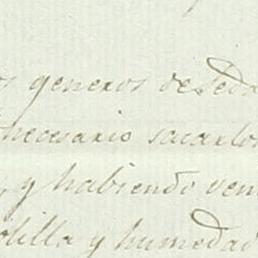 s generos de seda
necesario sacarlos
y habiendo ven
olilla y humedad